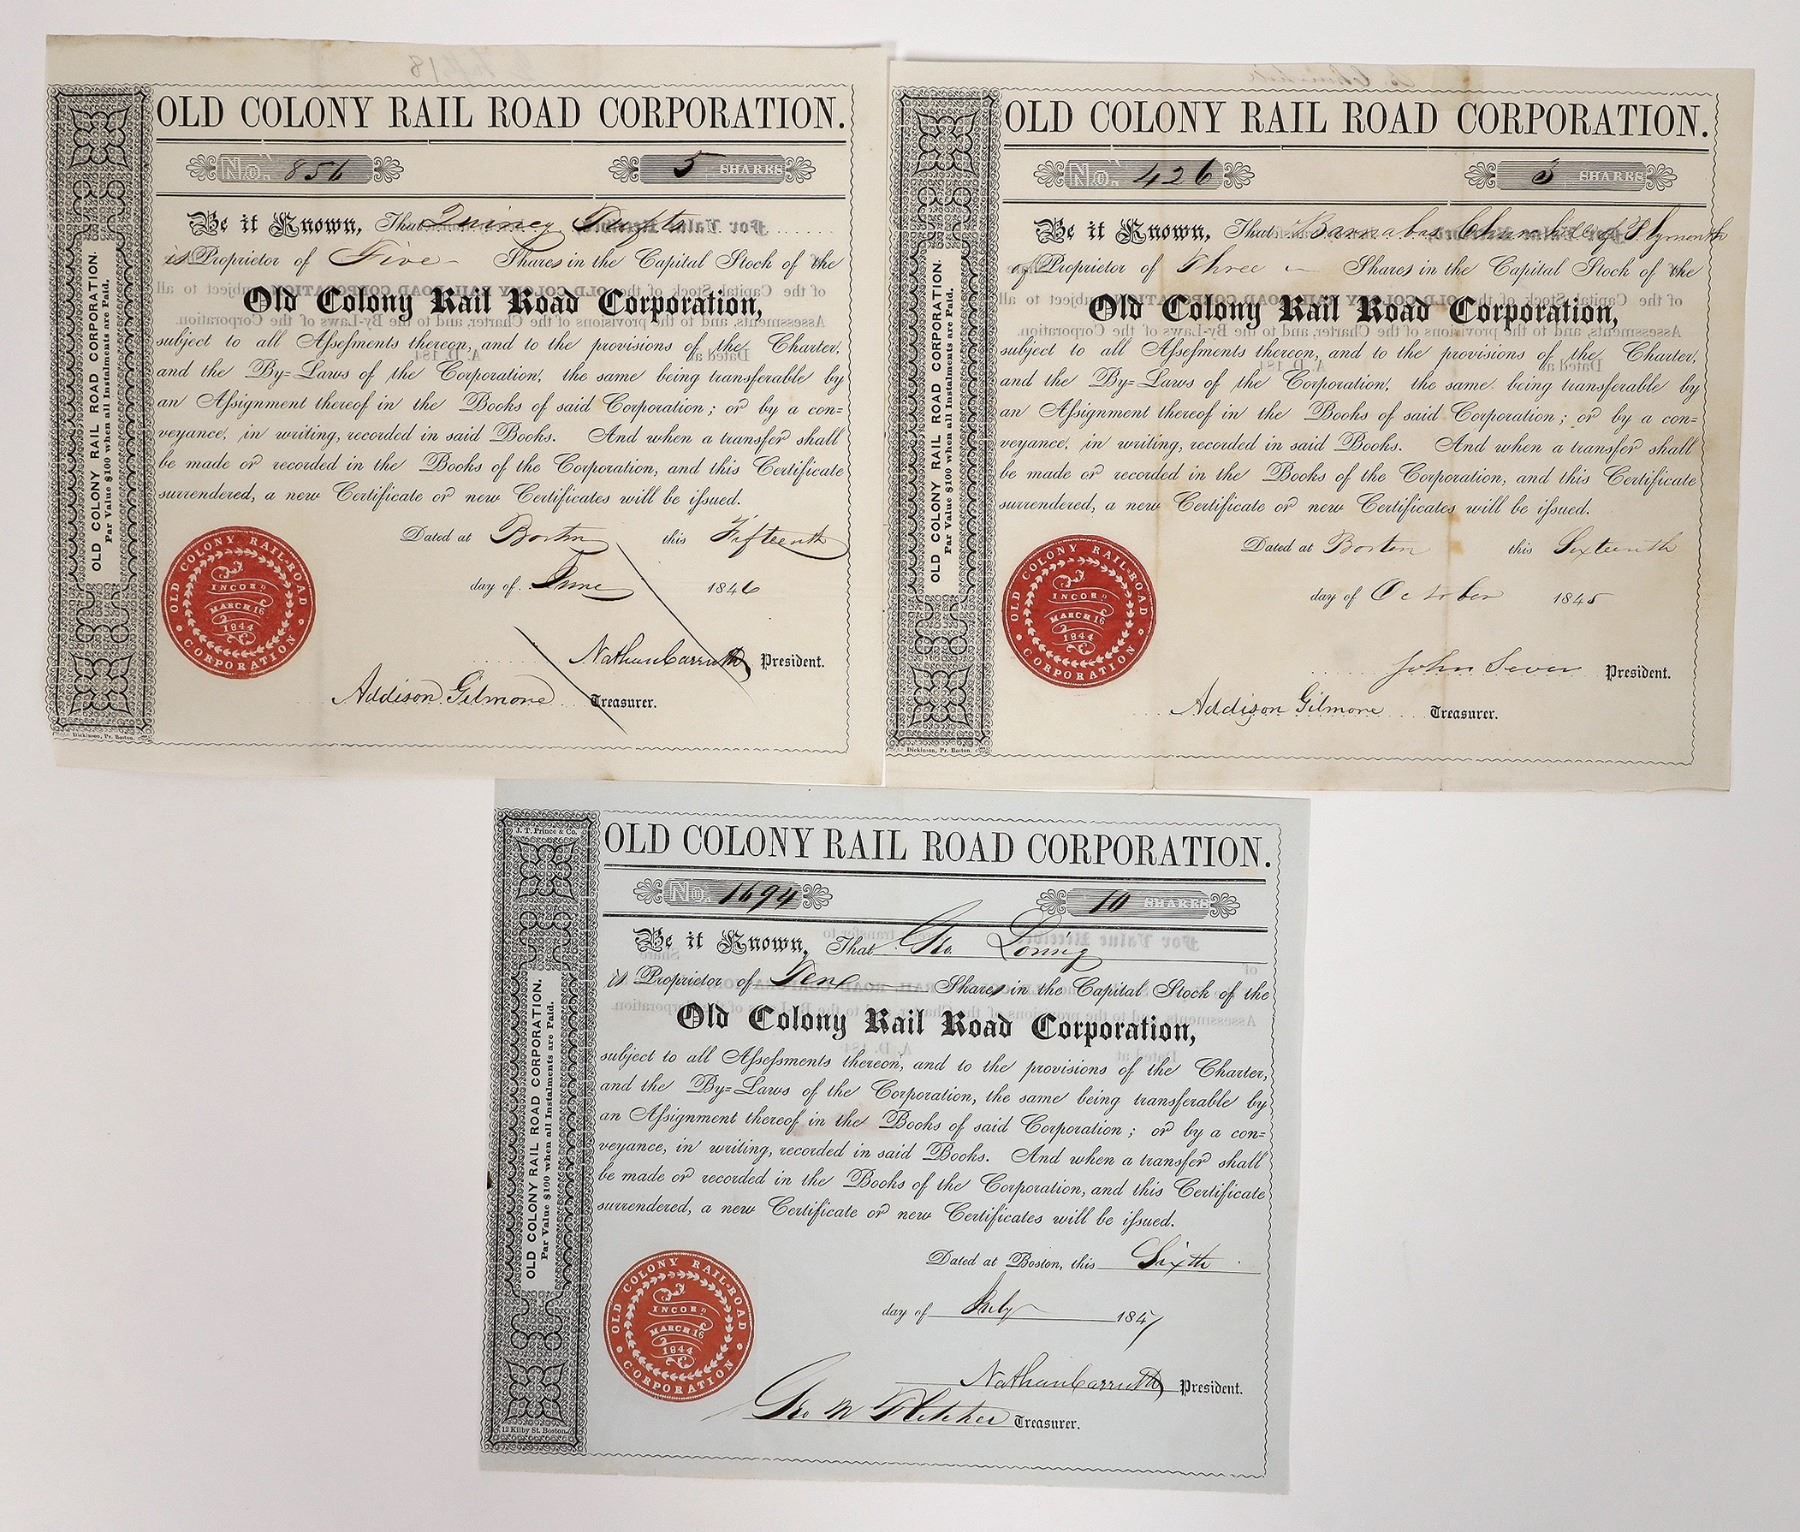 OLD COLONY RAIL ROAD CORPORATION.
No. 856 5 SHARES
Be it Known, That Quincy Tufts
is Proprietor of Five Shares in the Capital Stock of the
Old Colony Rail Road Corporation,
subject to all Assessments thereon, and to the provisions of the Charter,
and the By=Laws of the Corporation, the same being transferable by
an Assignment thereof in the Books of said Corporation; or by a con=
veyance, in writing, recorded in said Books. And when a transfer shall
be made or recorded in the Books of the Corporation, and this Certificate
surrendered, a new Certificate or new Certificates will be issued.
Dated at Boston this Fifteenth
day of June 1846
Nathan Carruth President.
Addison Gilmore Treasurer.
OLD COLONY RAIL ROAD CORPORATION.
Par Value $100 when all Instalments are Paid.
OLD COLONY RAIL-ROAD CORPORATION
INCORD
MARCH 16
1844
Dickinson, Pr. Boston.
OLD COLONY RAIL ROAD CORPORATION.
No. 426 3 SHARES
Be it Known, That Barnabas Churchill of Plymouth
is Proprietor of Three Shares in the Capital Stock of the
Old Colony Rail Road Corporation,
subject to all Assessments thereon, and to the provisions of the Charter,
and the By=Laws of the Corporation, the same being transferable by
an Assignment thereof in the Books of said Corporation; or by a con=
veyance, in writing, recorded in said Books. And when a transfer shall
be made or recorded in the Books of the Corporation, and this Certificate
surrendered, a new Certificate or new Certificates will be issued.
Dated at Boston this Sixteenth
day of October 1845
John Sever President.
Addison Gilmore Treasurer.
OLD COLONY RAIL ROAD CORPORATION.
Par Value $100 when all Instalments are Paid.
OLD COLONY RAIL-ROAD CORPORATION
INCORD
MARCH 16
1844
Dickinson, Pr. Boston.
OLD COLONY RAIL ROAD CORPORATION.
No. 1694 10 SHARES
Be it Known, That Geo. Loring
is Proprietor of Ten Shares in the Capital Stock of the
Old Colony Rail Road Corporation,
subject to all Assessments thereon, and to the provisions of the Charter,
and the By=Laws of the Corporation, the same being transferable by
an Assignment thereof in the Books of said Corporation; or by a con=
veyance, in writing, recorded in said Books. And when a transfer shall
be made or recorded in the Books of the Corporation, and this Certificate
surrendered, a new Certificate or new Certificates will be issued.
Dated at Boston, this Sixth
day of July 1847
Nathan Carruth President.
Geo M Fletcher Treasurer.
J. T. Prince & Co.
OLD COLONY RAIL ROAD CORPORATION.
Par Value $100 when all Instalments are Paid.
12 Kilby St. Boston.
OLD COLONY RAIL-ROAD CORPORATION
INCORD
MARCH 16
1844